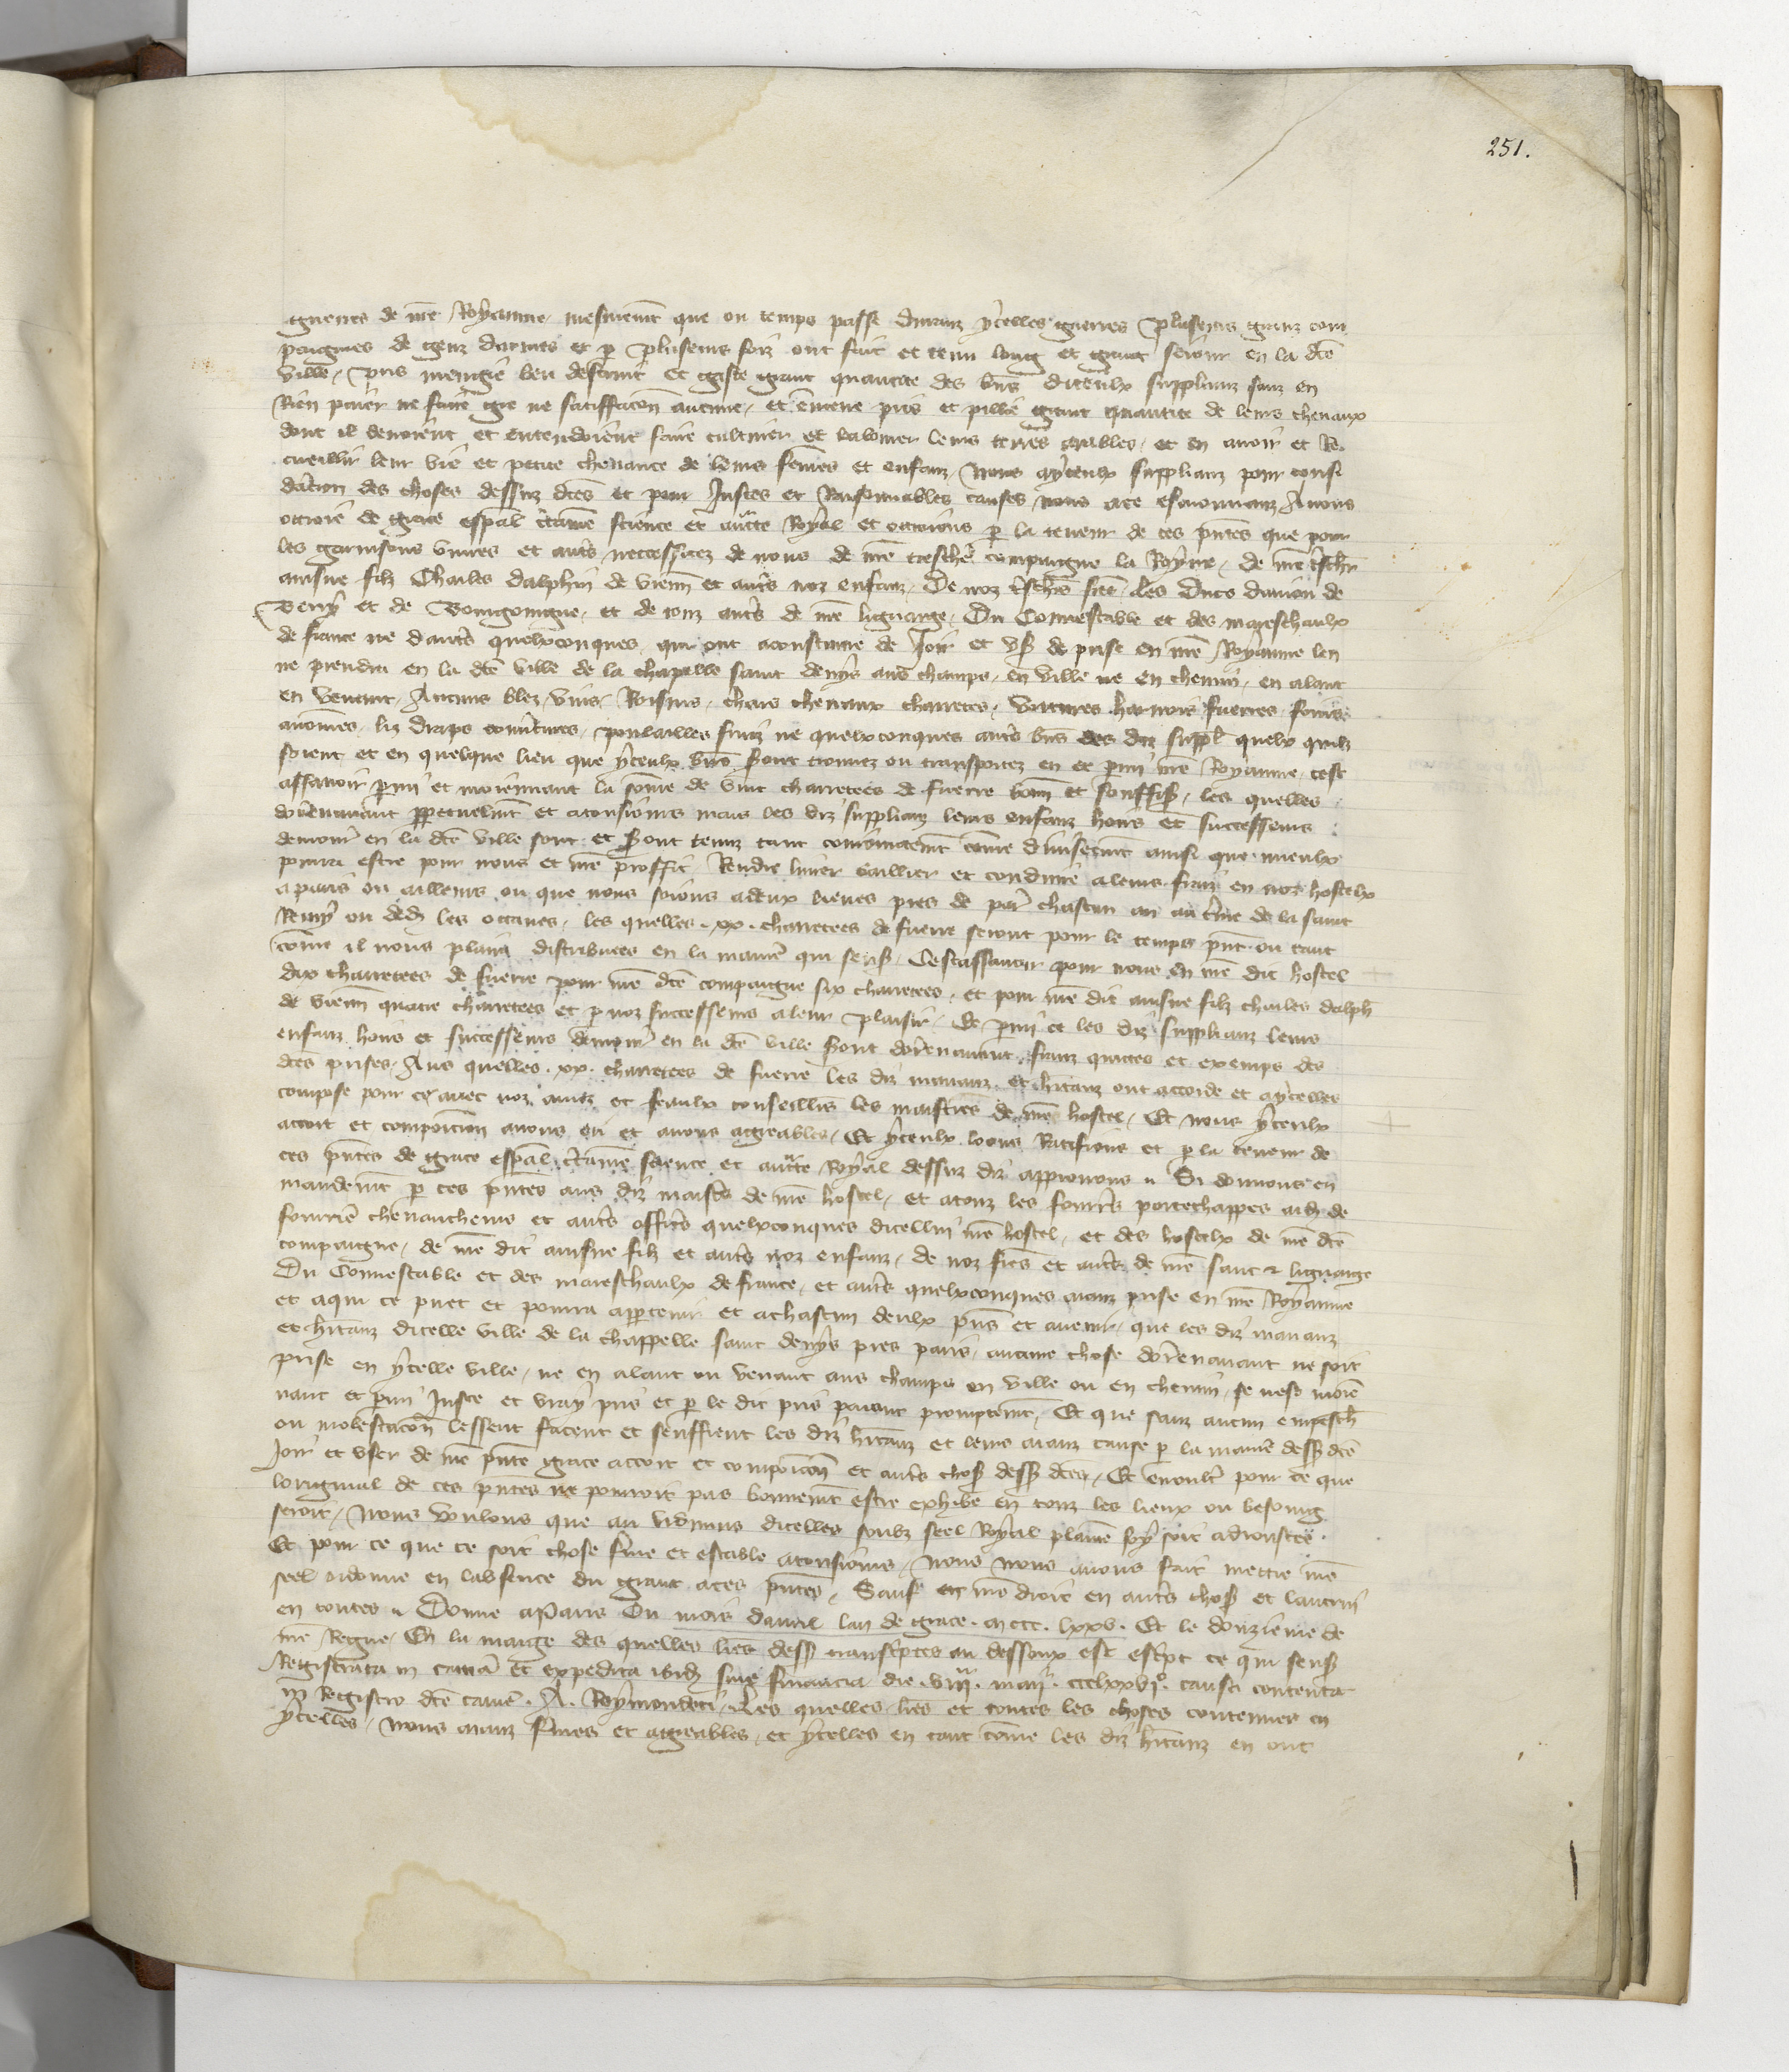 251.
guerres de nre Royaume mesmemt que ou temps passe durans ycelles guerres plusieurs grans com
paignies de genz darmes et p plusieurs foiz ont fait et tenu long et grant seiour en la dce
ville, pris mengie beu despendu et gaste grant quantite des biens diceulx supplians sanz en
Rien paier ne faire gre ne satisfacon aucune, et emmene pris et pillie grant quantite de leurs chevaux
dont il devoient et entendoient faire cultiver et labourer leurs terres arables, et en avoir et Re
cueillir leur vie et petite chevance de leurs femes et enfanz, Nous ayceulx supplianz pour consi
deracion des choses dessus dces et pour Justes et Raisonnables causes nous ace esmouvanz Avons
ottroie de grace espal ctaine science et auctte Royal et ottroions p la teneur de ces pntes que pour
les garnisons vivres et autrs neccessitez de nous de nre treschere compaigne la Royne, de nre trscher
ainsne filz Charles dalphin de vienn et autrs noz enfanz, De noz trschrs freres les Ducs daniou de
Berry et de Bourgoingne, et de touz autrs de nre lignaige, Du Connestable et des mareschaulx
de france ne dautrs quelxconques, qui ont acoustume de Joir et usr de prise en nre Royaume len
ne prendra en la dce ville de la chapelle saint denys aus champs, en ville ne en chemin, en alant
en venant, Aucuns blez, vins, Roisins, chars chevaux charretes, voitures harnois fuerres foins
avoines, liz draps couvertures, poulailles fruiz ne quelxconques autrs biens des diz suppl quelx quilz
soient et en quelque lieu que yceulx biens seront trouvez ou transportez en et parmi nre Royaume, cest
assavoir parmi et moiennant la some de vint charretees de fuerre bonn et souffisr, les quelles
dorenavant perpetuelmt et atousiours mais les diz supplianz leurs enfanz hoirs et successeurs
demour en la dce ville sont et seront tenuz tant conioinctemt come divisemt ainsi que mieulx
pourra estre pour nous et nre proffit Rendre livrer baillier et conduire aleurs fraiz en noz hostelx
aparis ou ailleurs ou que nous soions adeux lieues pres de par chascun an au terme de la saint
Remy ou dedz les ottaves, les quelles .xx. charretees de fuerre seront pour le temps pnt ou tant
come il nous plaira distribuees en la maniere qui sensr, Cestassavoir pour nous en nre dit hostel
dix charretees de fuerre pour nre dce compaigne six charretees, et pour nre dit ainsne filz charles dalph
de vienn quatre charretees et p noz successeurs aleur plaisir, Et parmi ce les diz supplianz leurs
enfanz hoirs et successeurs demour en la dce ville seront dorenavant franz quittes et exemps des
dces prises, Aus quelles .xx. charretees de fuerre les diz manans et hitanz ont accorde et aycelles
compose pour ce avec noz amez et feaulx conseillrs les maistres de nre hostel, Et nous yceulx
accort et composicion avons eu et avons agreables, Et yceulx loons Ratifions et p la teneur de
ces pntes de grace espal ctaine science et auctte Royal dessus diz approuvons. Si donnons en
mandemt p ces pntes aus diz maistrs de nre hostel, et atouz les fourrs portechappes aidz de
fourrie chevaucheurs et autrs officrs quelxconques dicellui nre hostel, et des hostelx de nre dce
compaigne, de nre dit ainsne filz et autrs noz enfanz, de noz frers et autrs de nre sanc et lignaige
Du Connestable et des mareschaulx de france, et autrs quelxconques aians prise en nre Royaume
et aqui ce puet et pourra appartenir et achascun deulx pns et avenir, que les diz manans
et hitanz dicelle ville de la chappelle saint denys pres paris, aucune chose dorenavant ne soit
prise en ycelle ville, ne en alant ou venant aus champs en ville ou en chemin, se nest moien
nant et parmi Juste et vray pris et p le dit pris paiant promptemt, Et que sanz aucun empesch
ou molestacon lessent facent et seuffrent les diz hitanz et leurs aians cause p la maniere dessr dce
Joir et user de nre pnte grace accort et composicon et autrs chosr dessr dces, Et enoultr pour ce que
loriginal de ces pntes ne pourroit pas bonnemt estre exhibe en touz les lieux ou besoing
seroit, Nous voulons que au vidimus dicelles soubz seel Royal plaine foy soit adioustee.
Et pour ce que ce soit chose ferme et estable atousiours, Nous nous avons fait mettre nre
seel ordonne en labsence du grant aces pntes, Sauf en nre droit en autrs chosr et lautrui
en toutes. Donne aParis Ou mois davril lan de grace .mccc. lxxv. Et le douzieme de
nre Regne, En la marge des quelles lres dessr transcriptes au dessoux est escript ce qui sensr
Registrata in camera et expedita ibidz sine financia die .viija. maij. ccclxxvjo. causa contenta
in Registro dce camere. A. Roymondeti. Les quelles lres et toutes les choses contenues en
ycelles, Nous aians fermes et agreables, et ycelles en tant come les diz hitanz en ont